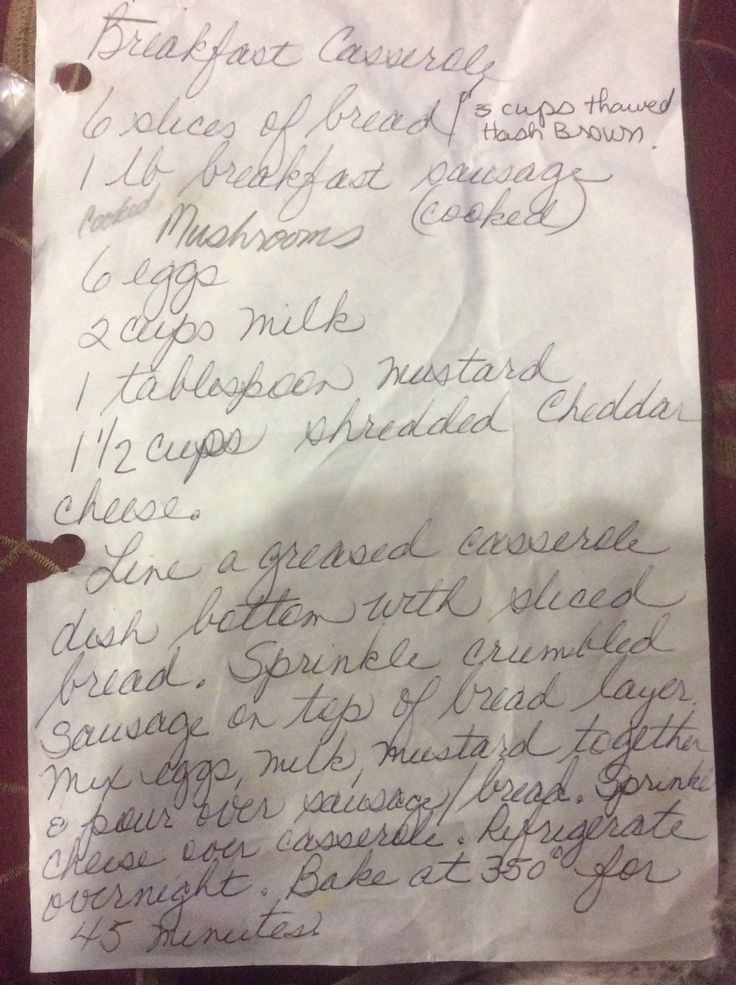 Breakfast Casserole
6 slices of bread / 3 cups thawed
Hash Brown.
1 lb breakfast sausage
(cooked)
Cooked Mushrooms
6 eggs
2 cups milk
1 tablespoon mustard
1 1/2 cups shredded Cheddar
cheese.
Line a greased casserole
dish bottom with sliced
bread. Sprinkle crumbled
sausage on top of bread layer.
Mix eggs, milk, mustard together
& pour over sausage/bread. Sprinkle
cheese over casserole. Refrigerate
overnight. Bake at 350° for
45 minutes.